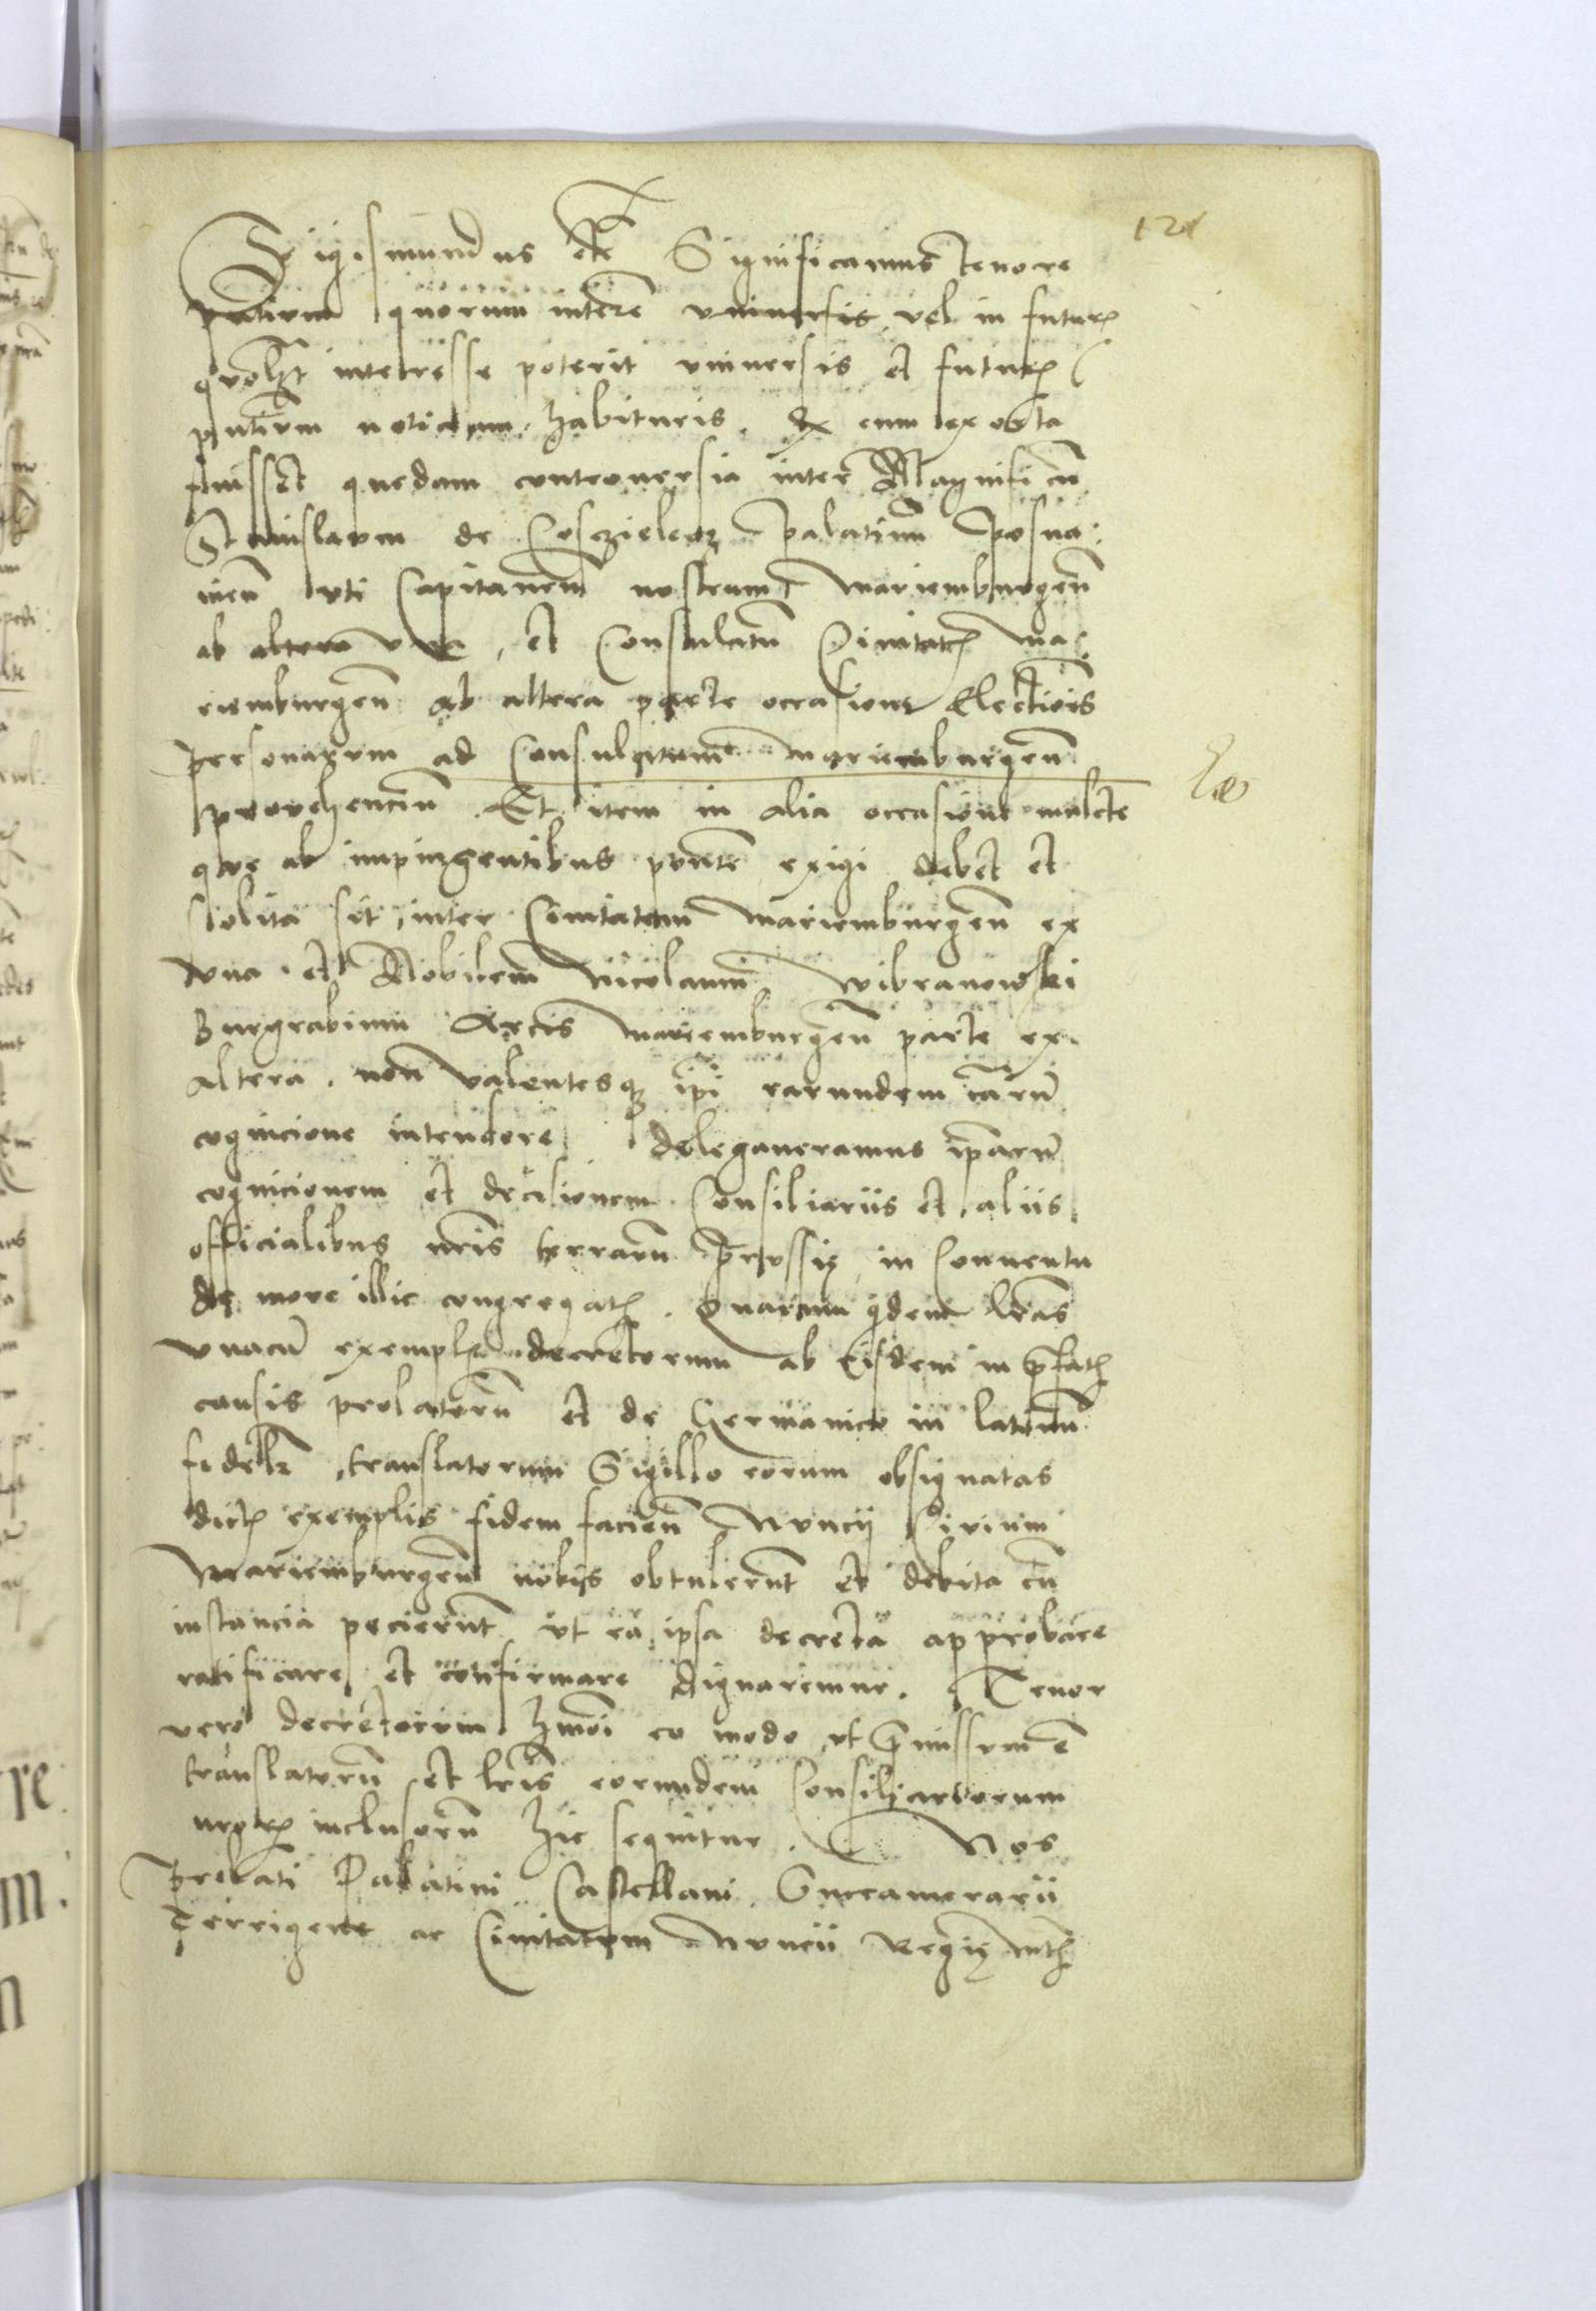 121
Sigismundus etc Significamus tenore
pntium quorum interē universis vel in futurꝫ
quolꝫt interesse poterit universis et futurꝫ
pntium noticiam habituris. Qꝫ cum exorta
fuisset quedam controversia inter Magnificū
Stanislaum de Cosczielecz Palatinū Posna:
nieñ uti Capitaneum nostrum Mariemburgeñ
ab altera una, et Consulatū Civitatꝫ Ma:
riemburgeñ ab altera parte occasione Electiōis
personarum ad Consulatum Mariemburgeñ
provehenciū. Et item in alia occasione mulcte
que ab impingentibus pontē exigi debet et
solita sit, inter Civitatem Mariemburgeñ ex
una et Nobilem Nicolaum Wibranowski
Burgrabium Arcis Mariemburgeñ parte ex
altera. non valentesqꝫ ipi earundem cārū
cognicione intendere, delegaveramus ipārū
cognicionem et decisionem Consiliariis et aliis
officialibus nr̄is terrarū Prussię in Conventu
de more illic congregatꝫ. Quarum qdem lr̄as
unacū exemplꝫ decretorum ab Eisdem in pfatꝫ
causis prolatorū et de Germanico in latinū
fidelr̄ translatorum Sigillo eorum obsignatas
dictꝫ exemplis fidem facieñ Nuncij Civium
Mariemburgeñ nobis obtulerūt et debita cū
instancia pecierūt ut ea ipsa decreta approbare
ratificare et confirmare dignaremur. Tenor
vero decretorum hmōi eo modo ut pmissum ē
translatorū et lr̄is eorundem Consiliariorum
nr̄orꝫ inclusorū hic sequitur. Nos
Prelati Palatini Castellani Succamerarii
Terrigene ac Civitatum Nuncii Regię mtꝫ